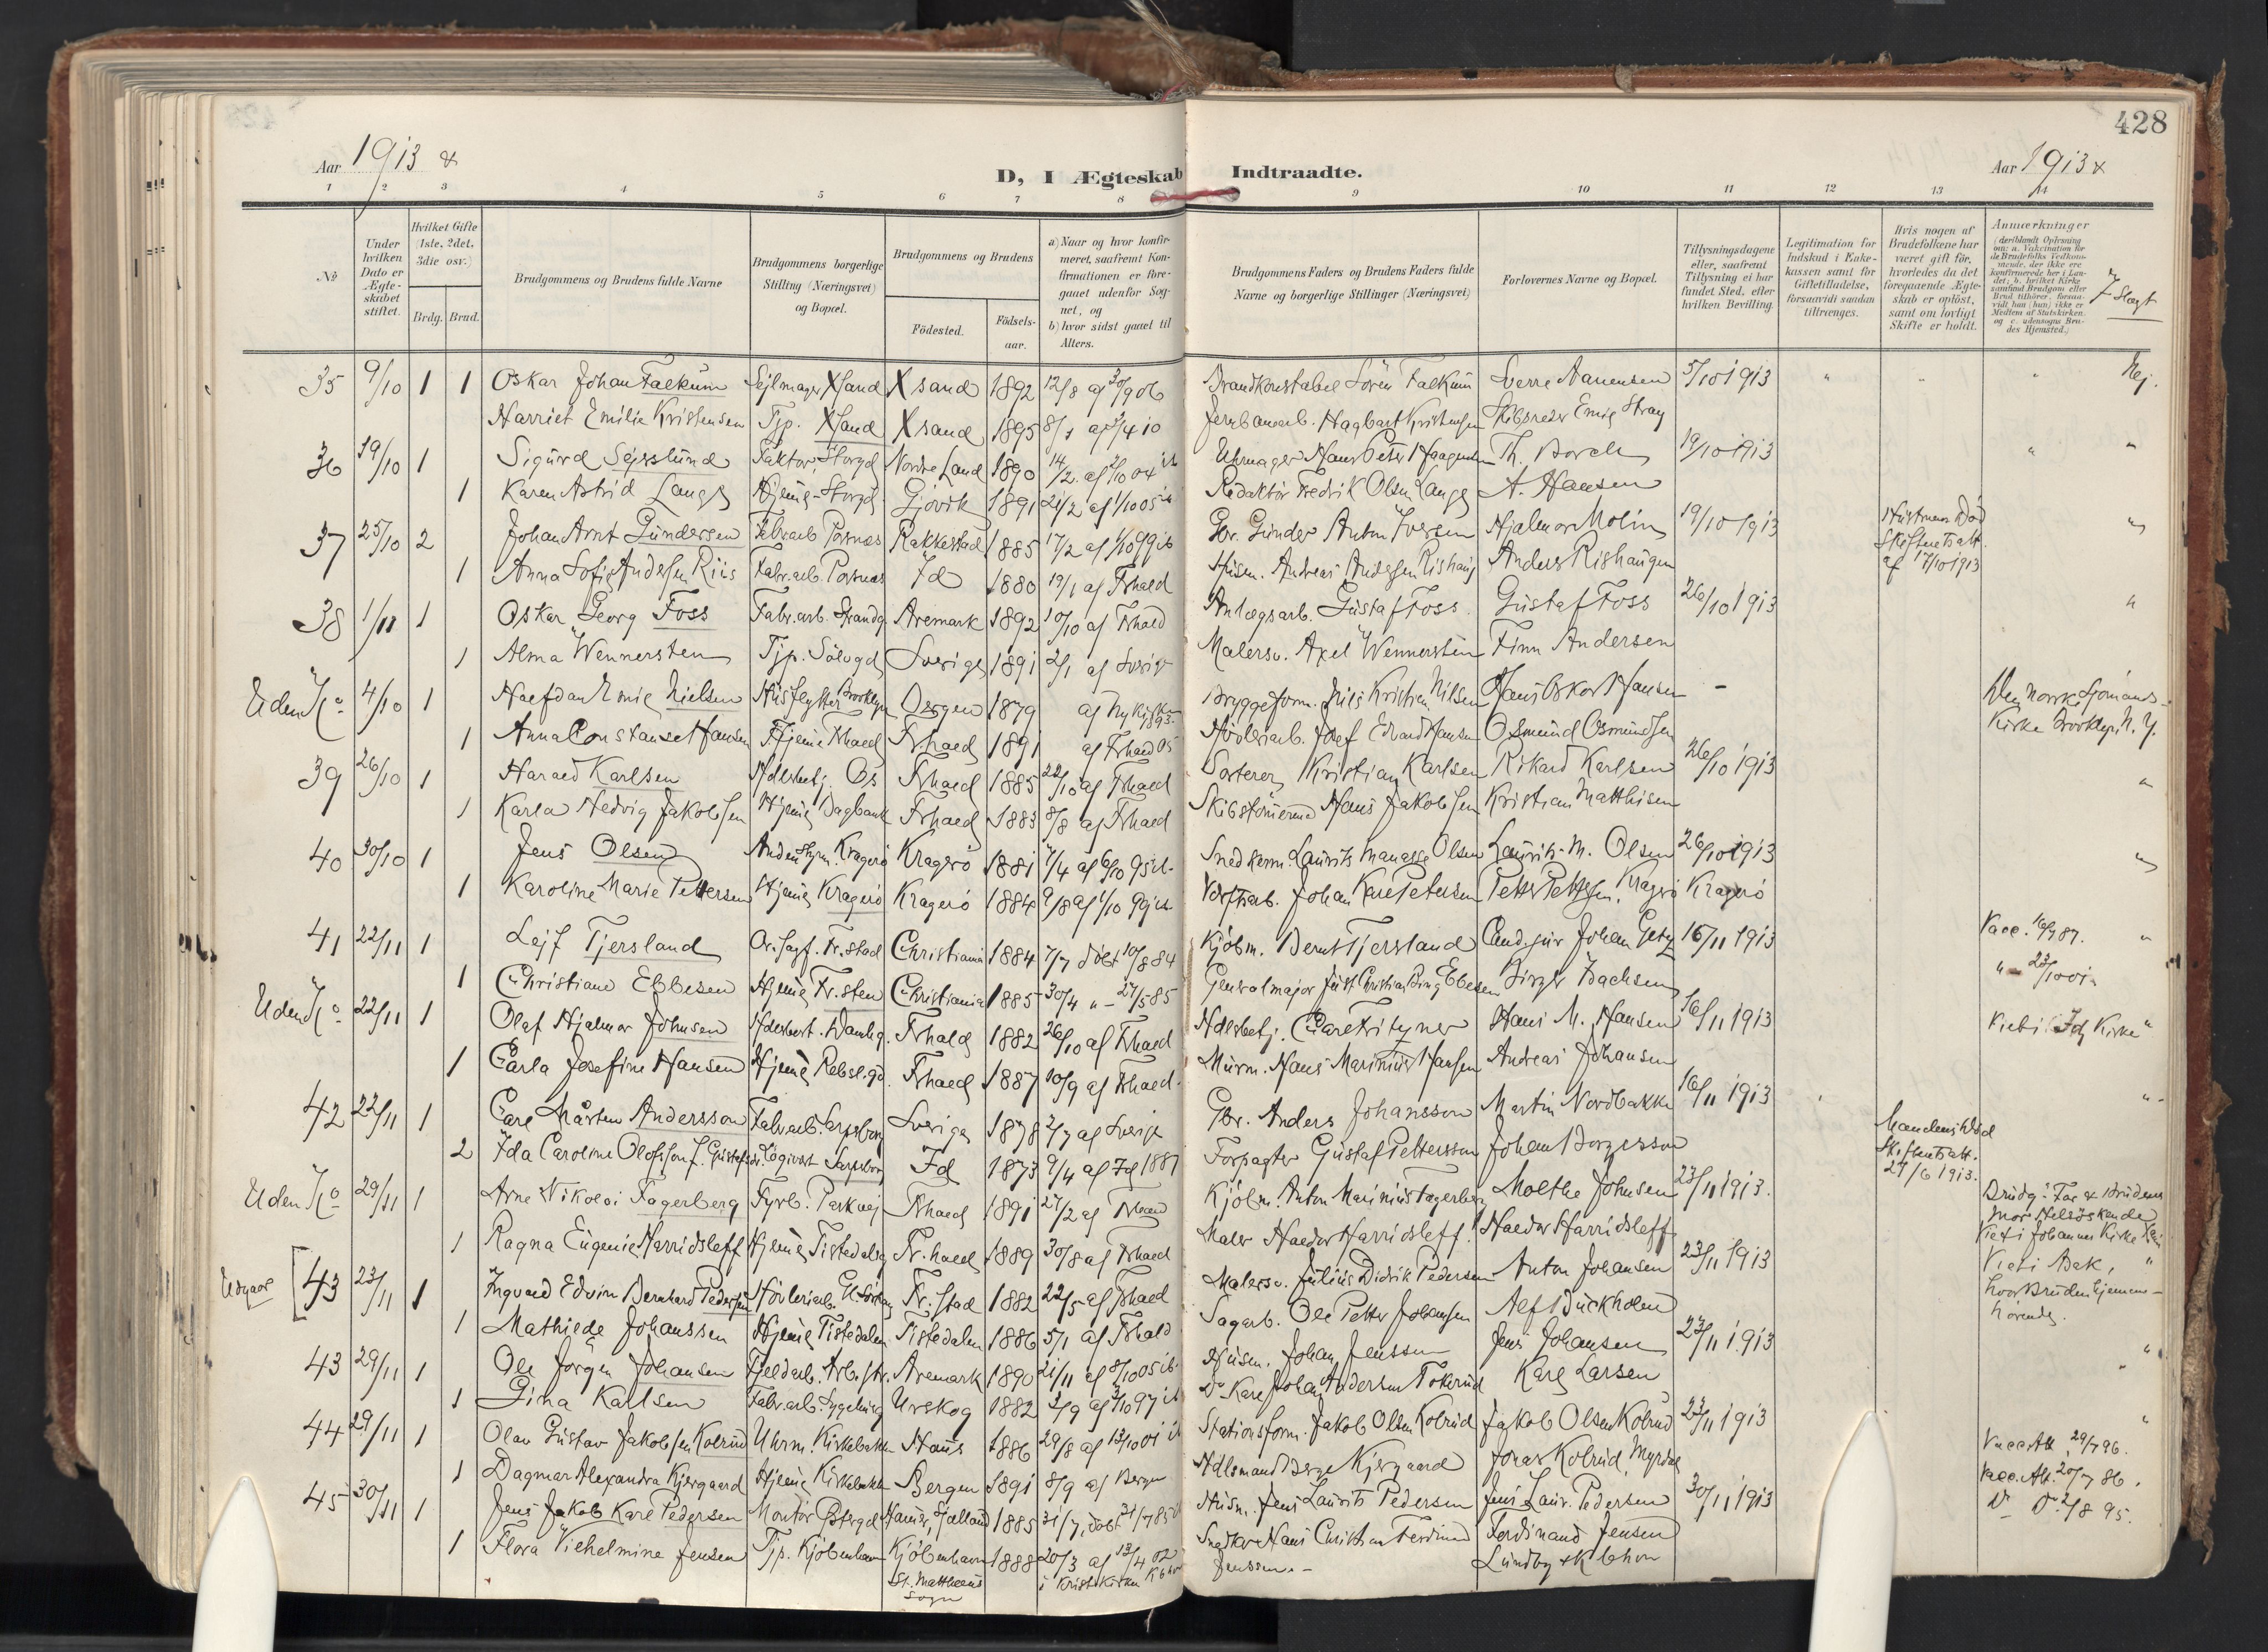 428
Aar 1913
D, I Ægteskab Indtraadte.
Aar 1913
1 2 3 4 5 6 7 8 9 10 11 12 13 14
No
Under hvilken Dato er Ægteskabet stiftet.
Hvilket Gifte (1ste, 2det, 3die osv.)
Brdg. Brud.
Brudgommens og Brudens fulde Navne
Brudgommens borgerlige Stilling (Næringsvei) og Bopæl.
Brudgommens og Brudens
Födested.
Födsels-aar.
a) Naar og hvor konfirmeret, saafremt Konfirmationen er foregaaet udenfor Sognet, og
b) hvor sidst gaaet til Alters.
Brudgommens Faders og Brudens Faders fulde Navne og borgerlige Stillinger (Næringsvei)
Forlovernes Navne og Bopæl.
Tillysningsdagene eller, saafremt Tillysning ei har fundet Sted, efter hvilken Bevilling.
Legitimation for Indskud i Enkekassen samt for Giftetilladelse, forsaavidt saadan tiltrænges.
Hvis nogen af Brudefolkene har været gift för, hvorledes da det foregaaende Ægteskab er oplöst, samt om lovligt Skifte er holdt.
Anmærkninger
(deriblandt Oplysning om: a. Vakcination for de Brudefolks Vedkommende, der ikke ere konfirmerede her i Landet; b. hvilket Kirkesamfund Brudgom eller Brud tilhörer, forsaavidt han (hun) ikke er Medlem af Statskirken, og c. udensogns Brudes Hjemsted.)
? Slægt
35 9/10 1 1 Oskar Johan Falkum Sejlmager Xsand Xsand 1892 12/8 af 30/9 06 Brandkonstabel Sören Falkum Sverre Aanensen 5/10 1913 " " " Nej.
Harriet Emilie Kristensen Tjp. Xsand Xsand 1895 Jernbanearb. Hagbart Kristensen Skibsreder Emil Stray
36 19/10 1 Sigurd Sejrslund Faktor, Storgd Nordre Land 1890 14/2 Uhrmager Hans Peter Haagensen Th. Borch 19/10 1913 " "
1 Karen Astrid Lange Hjeme-Storgd Gjövik 1891 21/2 af 1/10 05 Redaktör Fredrik Olsen Lange A. Hansen
37 25/10 2 Johan Arnt Gundersen Fabr.arb Porsnes Rakkestad 1885 17/2 af 1/10 99 ib Gbr. Gunder Anton Iversen Hjalmar Molin 19/10 1913 Hustruen Död Skifteretsatt. af 17/10 1913 "
1 Anna Sofie Andersen Riis Fabr.arb. Porsnes Id 1880 19/1 af Frhald Husm. Andreas Andersen Rishaug Anders Rishaugen
38 1/11 1 Oskar Georg Foss Fabr.arb. Strandg. Aremark 1892 10/10 af Frhald Anlægsarb. Gustaf Foss Gustaf Foss 26/10 1913 "
1 Alma Wennersten Tjp. Sölvgd Sverige 1891 2/1 af Sverige Malersv. Axel Wennersten Finn Andersen
Uden No 4/10 1 Halfdan Emil Nielsen Husflytter Brooklyn Bergen 1879 af Nykirken 1893 Bryggeform. Nils Kristian Nilsen Hans Oskar Hansen - Den Norske Sjömands-
1 Anna Constanse Hansen Hjeme Frhald Fr.hald 1891 af Frhald 05 Hövleriarb. Josef Edvard Hansen Osmund Osmundsen Kirke Brooklyn N.Y.
39 26/10 1 Harald Karlsen Hdlsbetj. Os Frhald 1885 22/10 af Frhald Sorterer Kristian Karlsen Rikard Karlsen 26/10 1913 "
1 Karla Hedvig Jakobsen Hjeme Dagbank Frhald 1883 8/8 af Frhald Skibstömmerm. Hans Jakobsen Kristian Matthisen
40 30/10 1 Jens Olsen Anden Styrm. Kragerö Kragerö 1881 7/4 af 6/10 95 ib Snedkerm. Laurits Manasse Olsen Laurits M. Olsen 26/10 1913 "
1 Karoline Marie Pettersen Hjeme Kragerö Kragerö 1884 9/8 af 1/10 99 ib Værftsarb. Johan Karl Petersen Petter Pettersen, Kragerö Kragerö
41 22/11 1 Lejf Tjersland Or. Sagf. Fr.stad Christiania 1884 7/7 döbt 10/8 84 Kjöbm. Bernt Tjersland Cand. jur Johan Getz 16/11 1913 Vacc. 16/7 87. "
1 Christiane Ebbesen Hjeme Fr.sten Christiania 1885 30/4 " 27/5 85 Generalmajor Just Christian Bing Ebbesen Birger Isachsen " 23/10 01
Uden No 22/11 1 Olaf Hjalmar Johnsen Hdlsbest. Damhg. Frhald 1882 26/10 af Frhald Hdlsbetj. Carl Frityner Hans M. Hansen 16/11 1913 Viet i Id Kirke "
1 Carla Josefine Hansen Hjeme Rebsl.gd. Frhald 1887 10/9 af Frhald Murm. Hans Marinius Hansen Andreas Johansen
42 22/11 1 Carl Mårten Andersson Fabr.arb. Sarpsborg Sverige 1878 2/7 af Sverige Gbr. Anders Johansson Martin Nordbakke 16/11 1913 "
2 Ida Caroline Olofsson f. Gustafsdr. Logivært Sarpsborg Id 1873 9/4 af Id 1887 Forpagter Gustaf Pettersson Johan Borgersson Mandens Död Skifteretsatt. 27/6 1913.
Uden No 29/11 1 Arne Nikolai Fagerberg Fyrb. Parkvej Frhald 1891 27/2 af Frhald Kjöbm. Anton Marinius Fagerberg Molthe Johnsen 23/11 1913. Brudg. Far & Brudens Mor Helsöskende
1 Ragna Eugenie Harridsleff Hjeme Tistedalen Fr.hald 1889 30/8 af Frhald Maler Haldor Harridsleff. Haldor Harridsleff Viet i Johannes Kirke
Udgaar [43 23/11 1 Ingvald Edvin Bernhard Pedersen Hövleriarb. Fr.stad 1882 22/5 af Frhald Malersv. Julius Didrik Pedersen Anton Johansen 23/11 1913 Viet i Bak, "
1 Mathilde Johanssen Hjeme Tistedalen Tistedalen 1886 5/1 af Frhald Sagarb. Ole Petter Johansen Alf Buckholm hvor Bruden hjemme-hörende.
43 29/11 1 Ole Jörgen Johansen Fjeldarb. Arb.str. Aremark 1890 21/11 af 8/10 05 ib. Husm. Johan Jenssen Jens Johansen 23/11 1913 "
1 Gina Karlsen Fabr.arb. Sygehusg Urskog 1882 2/9 af 3/10 97 ib Do Karl Johan Andersen Tokerud Karl Larsen
44 29/11 1 Olav Gustav Jakobsen Kolrud Uhrm. Kirkebakk. Hous 1886 29/8 af 13/10 01 ib Stationsform. Jakob Olsen Kolrud Jakob Olsen Kolrud 23/11 1913 "
1 Dagmar Alexandra Kjergaard Hjeme Kirkebakk. Bergen 1891 8/9 af Bergen Hdlsmand Berge Kjergaard Jonas Kolrud, Myrdal Vacc. Att. 29/7 96.
45 30/11 1 Jens Jakob Karl Pedersen Montör Ostergd Sjælland 1885 31/7, döbt Husm. Jens Laurits Pedersen Jens Laur. Pedersen 30/11 1913 Vacc. Att. 20/7 86.
1 Flora Vilhelmine Jensen Tjp. Kjöbenhavn Kjöbenhavn 1888 20/3 af 13/4 02 Snedker Hans Christian Ferdinand Ferdinand Jensen Do Do 2/8 95.
St. Matthæus Sogn i Kristkirken Kbhvn Jenssen. Lundby Kbhvn